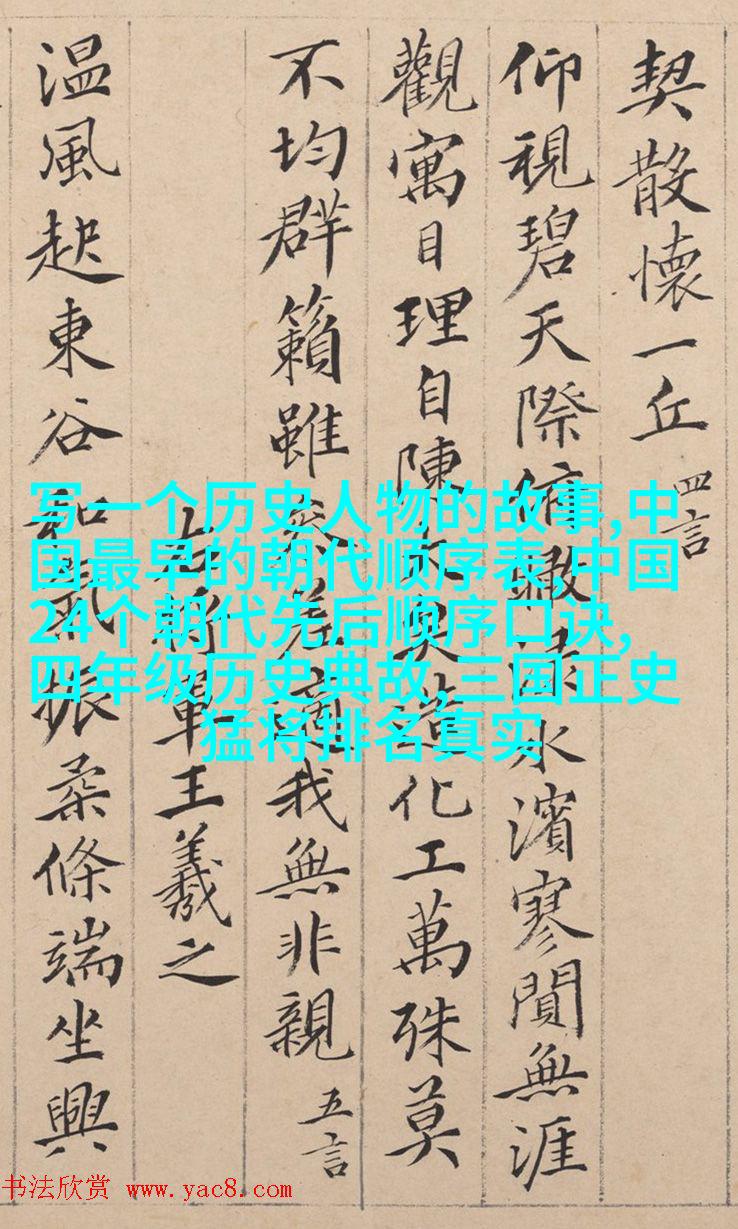 契散懷一丘 四言
仰視碧天際俯瞰淥水濱寥閴無涯
觀寓目理自陳大矣造化工萬殊莫
不均群籟雖參差適我無非親 五言
右將軍王羲之
温風起東谷和氣振柔條端坐興
写一个历史人物的故事,中
国最早的朝代顺序表,中国
24个朝代先后顺序口诀,
四年级历史典故,三国正史
猛将排名真实
书法欣赏 www.yac8.com